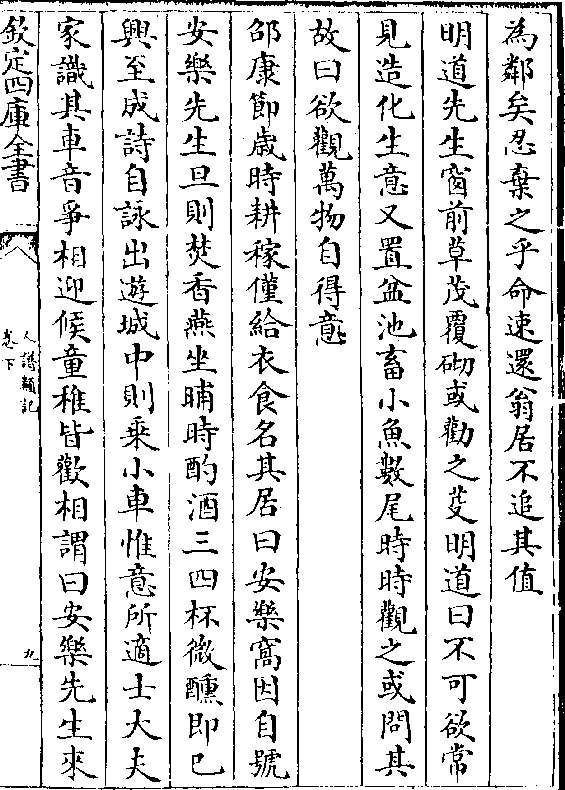 為鄰矣忍棄之乎命速還翁居不追其值
明道先生窗前草茂覆砌或勸之芟明道曰不可欲常
見造化生意又置盆池畜小魚數尾時時觀之或問其
故曰欲觀萬物自得意
邵康節歲時耕稼僅給衣食名其居曰安樂窩因自號
安樂先生旦則焚香燕坐晡時酌酒三四杯微醺即已
興至成詩自詠出遊城中則乘小車惟意所適士大夫
家識其車音爭相迎候童稚皆歡相謂曰安樂先生來
欽定四庫全書
人譜類記
卷下
九